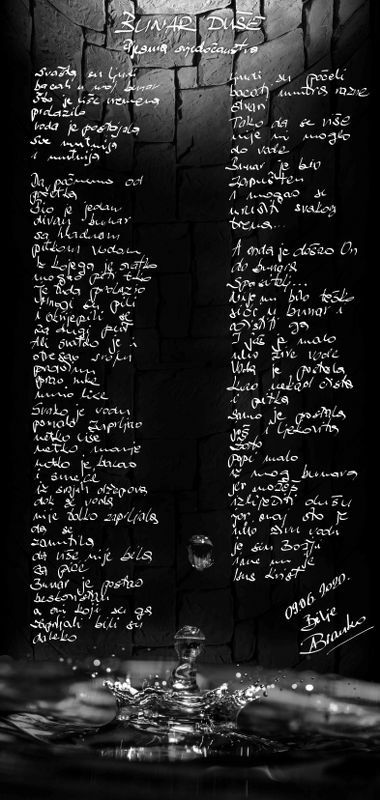 BUNAR DUŠE
Prema svjedočanstvu
Svašta su ljudi
bacali u moj bunar
Što je više vremena
prolazilo
voda je postajala
sve mutnija
i mutnija
Da počnemo od
početka
Bio je jedan
divan bunar
sa hladnom
pitkom vodom
iz kojega je svatko
mogao piti tko
je tuda prolazio
Mnogi su pili
i okrijepili se
za drugi put
Ali svatko je i
opeasao
prao ruke
umio lice
Svako je vodu
pomalo zaprljao
netko više
netko manje
netko je bacao
i smeće
iz svojih džepova
dok se voda
nije toliko zaprljala
da se
zamutila
da više nije bila
za piće
Bunar je postao
beskoristan
a oni koji su ga
zaprljali bili su
daleko
Ljudi su počeli
bacati unutra razne
stvari
Tako da se više
nije ni moglo
do vode
Bunar je bio
zapušten
i mogao se
urušiti svakog
trena...
A onda je došao On
do bunara
Spasitelj...
Nije mu bilo teško
sići u bunar i
očistiti ga
I još je malo
ulio žive vode
Voda je postala
kao nekad čista
i pitka
samo je postala
još i ljekovita
Zato
popij malo
iz mog bunara
jer možeš
izliječiti dušu
jer onaj što je
ulio živu vodu
je Sin Božji
ime mu je
Isus Krist
09.06.2020.
Bilje
ABranko